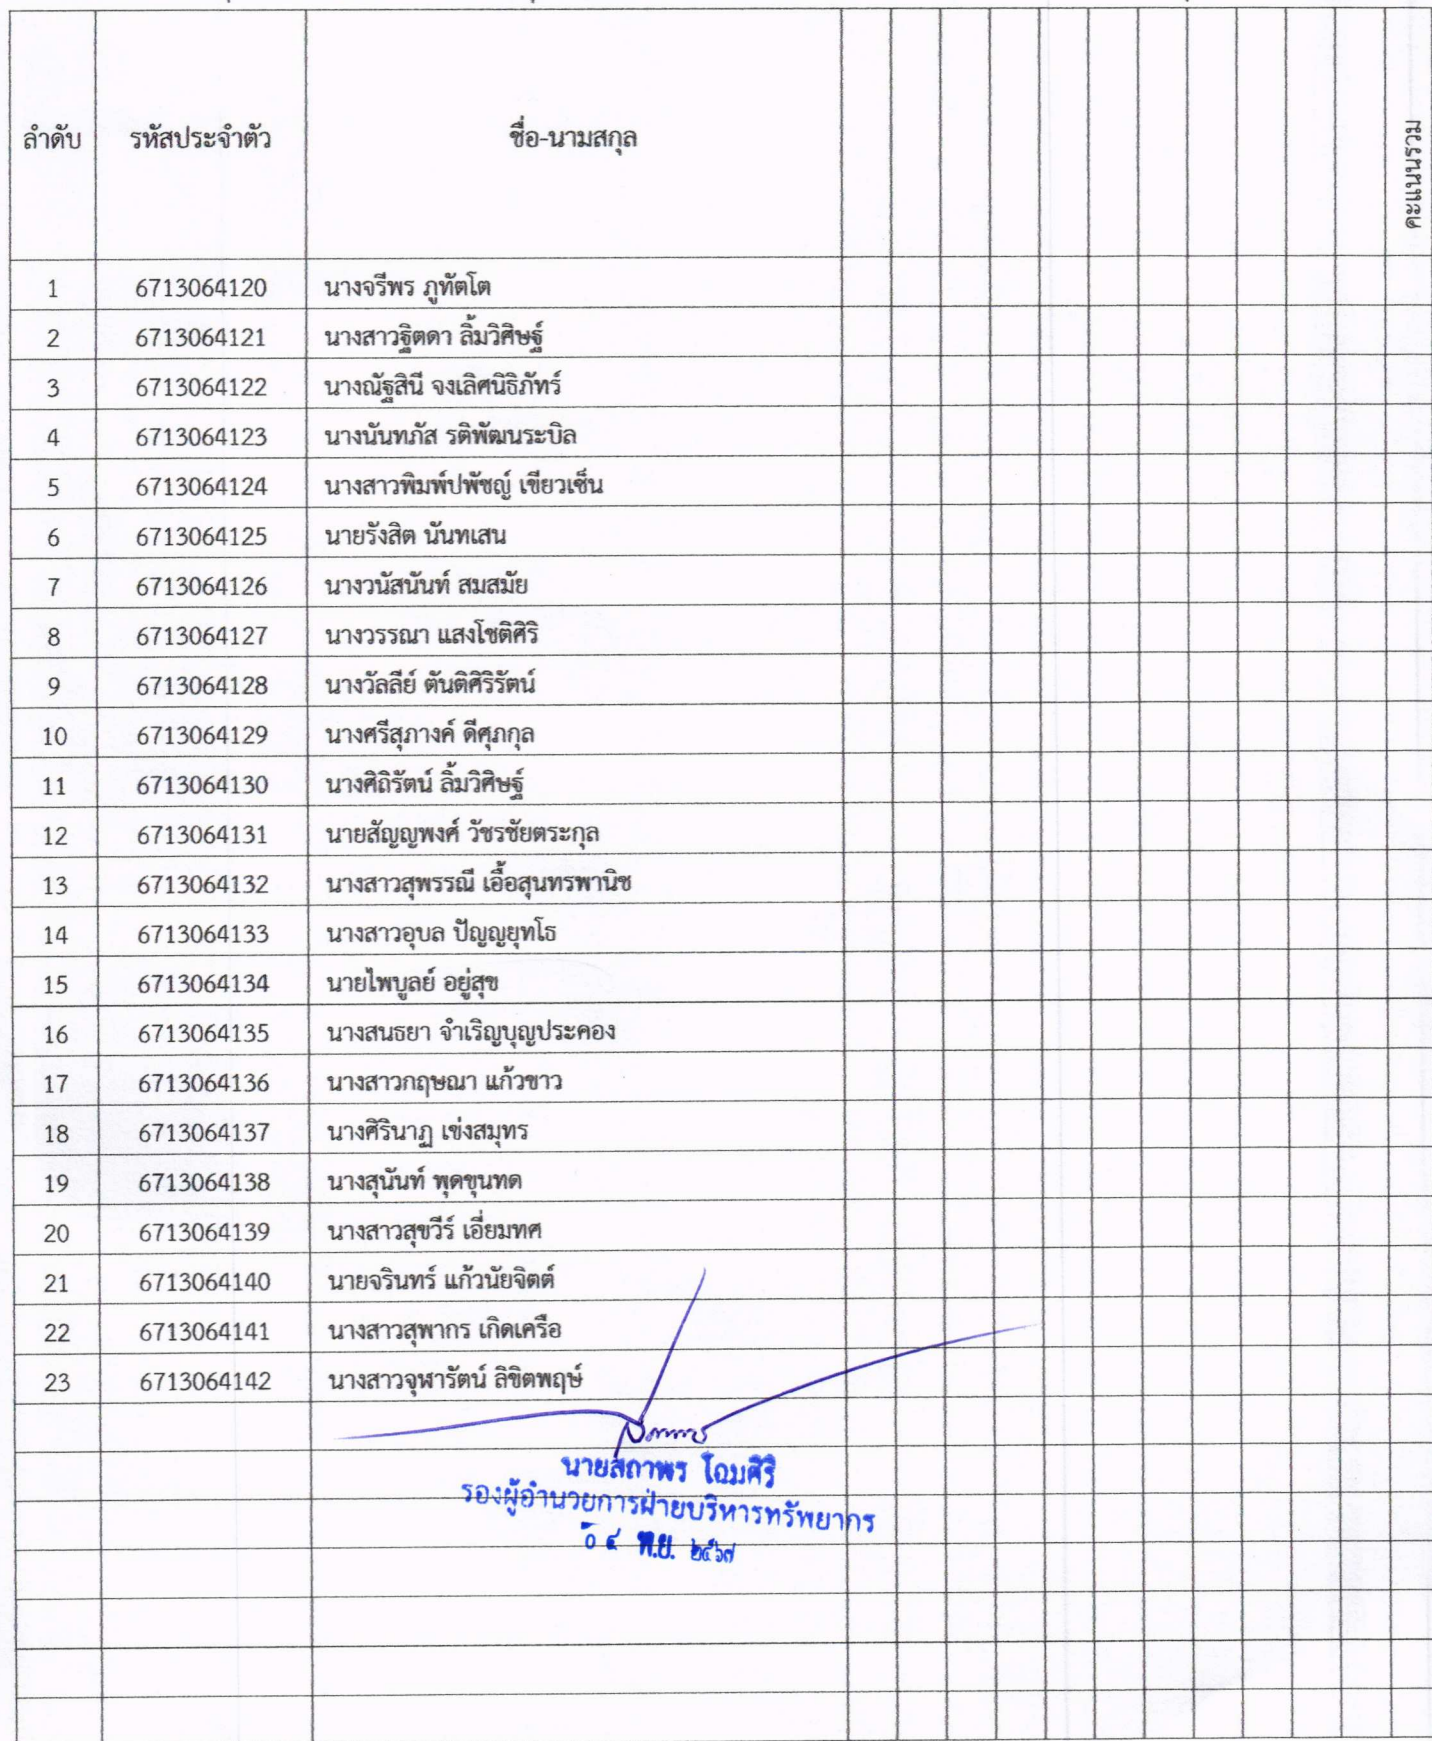 ลำดับ รหัสประจำตัว ชื่อ-นามสกุล คะแนนรวม
1 6713064120 นางจรีพร ภูทัตโต
2 6713064121 นางสาวฐิตดา ลิ้มวิศิษฐ์
3 6713064122 นางณัฐสินี จงเลิศนิธิภัทร์
4 6713064123 นางนันทภัส รติพัฒนระบิล
5 6713064124 นางสาวพิมพ์ปพัชญ์ เขียวเซ็น
6 6713064125 นายรังสิต นันทเสน
7 6713064126 นางวนัสนันท์ สมสมัย
8 6713064127 นางวรรณา แสงโชติศิริ
9 6713064128 นางวัลลีย์ ตันติศิริรัตน์
10 6713064129 นางศรีสุภางค์ ดีศุภกุล
11 6713064130 นางศิถิรัตน์ ลิ้มวิศิษฐ์
12 6713064131 นายสัญญพงศ์ วัชรชัยตระกุล
13 6713064132 นางสาวสุพรรณี เอื้อสุนทรพานิช
14 6713064133 นางสาวอุบล ปัญญยุทโธ
15 6713064134 นายไพบูลย์ อยู่สุข
16 6713064135 นางสนธยา จำเริญบุญประคอง
17 6713064136 นางสาวกฤษณา แก้วขาว
18 6713064137 นางศิรินาฏ เข่งสมุทร
19 6713064138 นางสุนันท์ พุดขุนทด
20 6713064139 นางสาวสุขวีร์ เอี่ยมทศ
21 6713064140 นายจรินทร์ แก้วนัยจิตต์
22 6713064141 นางสาวสุพากร เกิดเครือ
23 6713064142 นางสาวจุฬารัตน์ ลิขิตพฤษ์
นายสถาพร โฉมศิริ
รองผู้อำนวยการฝ่ายบริหารทรัพยากร
๐๔ พ.ย. ๒๕๖๗